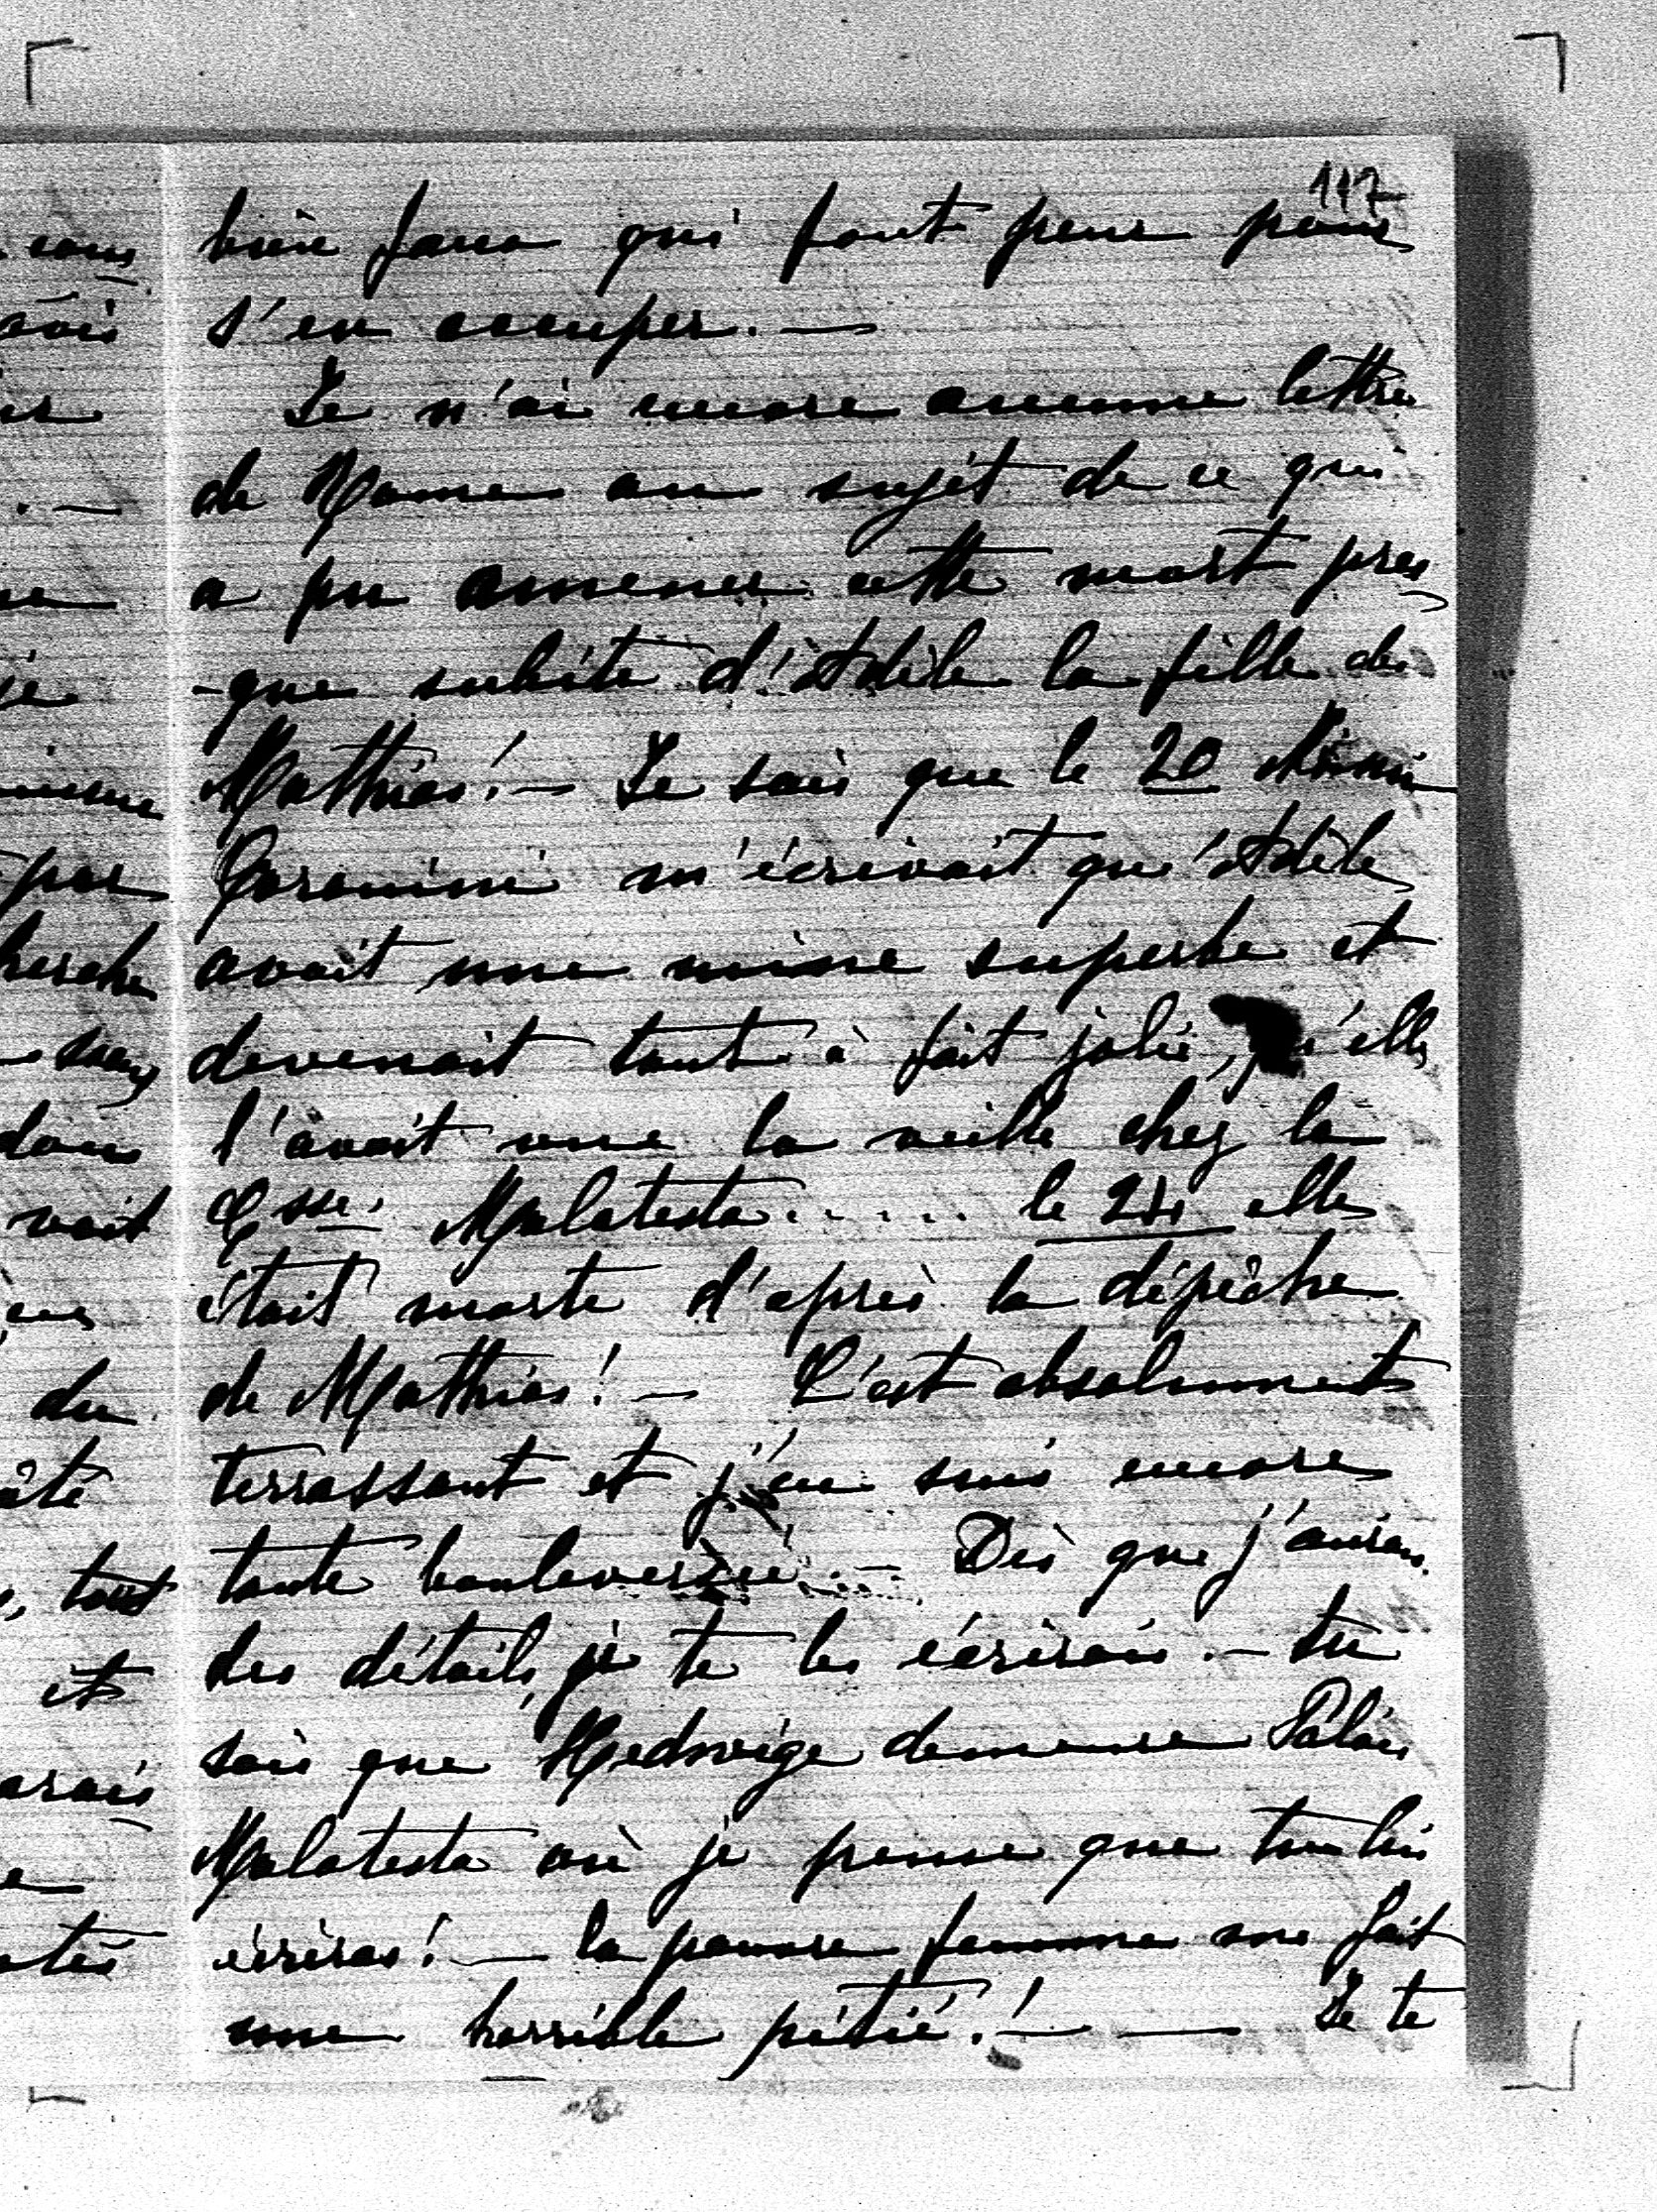 117
bien faux qui font peur pour
s'en occuper. —
Je n'ai encore aucune lettre
de Rome au sujèt de ce qui
a pu amener cette mort pres
-que subite d'Adèle la fille de
Mathias! — Je sais que le 20 Mimi
m'écrivait qu'Adèle
avait une mine superbe et
devenait tout à fait jolie, qu'elle
l'avait vue la veille chez la
Csse. Malatesta...... le 24 elle
était morte d'après la dépêche
de Mathias! — C'est absolument
terrassant et j'en suis encore
toute bouleversée. — Dès que j'aurai
des détails, je te les écrirai. — tu
sais que Hedwige demeure Palais
Malatesta où je pense que tu lui
écriras! — la pauvre femme me fait
une horrible pitié! — — Je te
sous
par
cherche
voit
du
tout
et